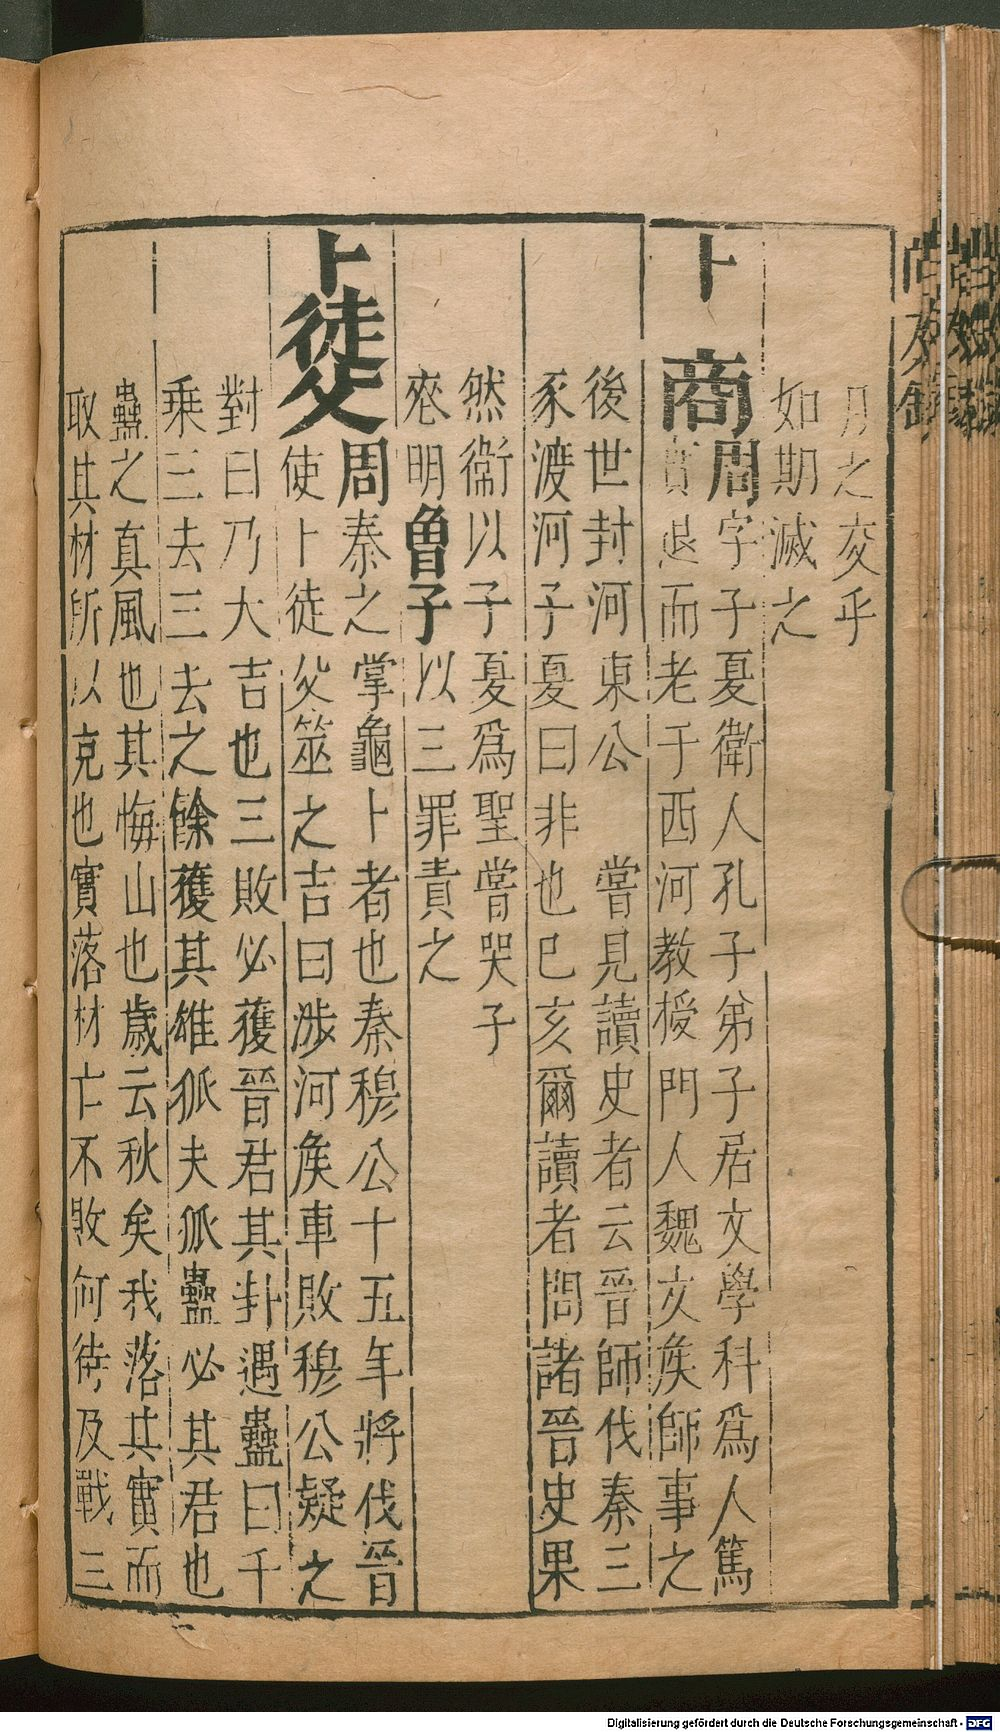 月之交乎
如期滅之
卜商周字子夏衛人孔子弟子居文學科爲人篤
實退而老于西河教授門人魏文矦師事之
後世封河東公 嘗見讀史者云晉師伐秦三
豕渡河子夏曰非也巳亥爾讀者問諸晉史果
然衛以子夏爲聖嘗哭子
喪明曾子以三罪責之
卜徒父周秦之掌龜卜者也秦穆公十五年將伐晉
使卜徒父筮之吉曰涉河矦車敗穆公疑之
對曰乃大吉也三敗必獲晉君其卦遇蠱曰千
乗三去三去之餘獲其雄狐夫狐蠱必其君也
蠱之真風也其悔山也歲云秋矣我落其實而
取其材所以克也實落材亡不敗何待及戰三
尚友錄
Digitalisierung gefördert durch die Deutsche Forschungsgemeinschaft - DFG